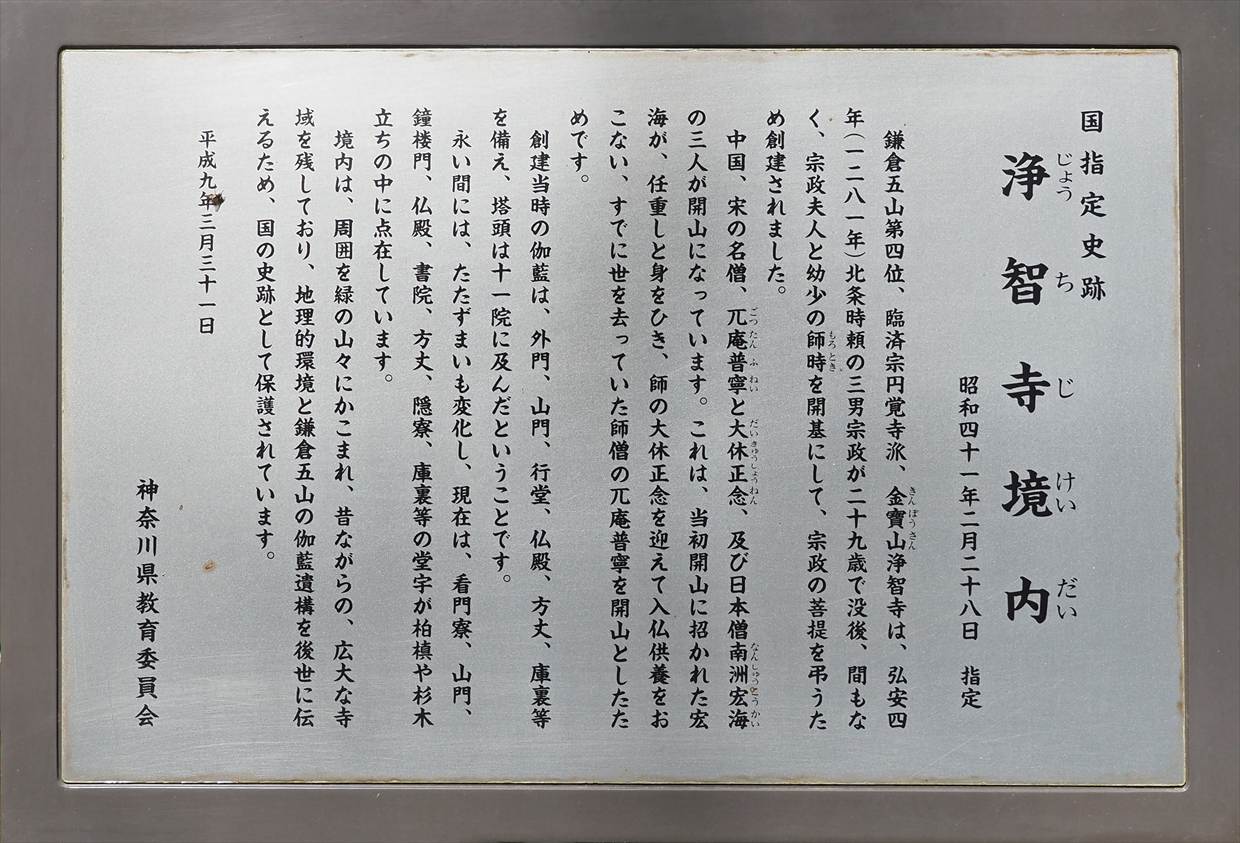 国指定史跡
浄智寺境内
じょう ち じ けい だい
昭和四十一年二月二十八日 指定
鎌倉五山第四位、臨済宗円覚寺派、金寶山浄智寺は、弘安四
きんぽうさん
年(一二八一年)北条時頼の三男宗政が二十九歳で没後、間もな
く、宗政夫人と幼少の師時を開基にして、宗政の菩提を弔うた
もろとき
め創建されました。
中国、宋の名僧、兀庵普寧と大休正念、及び日本僧南洲宏海
ごつたん ふ ねい だいきゅうしょうねん なんしゅうこうかい
の三人が開山になっています。これは、当初開山に招かれた宏
海が、任重しと身をひき、師の大休正念を迎えて入仏供養をお
こない、すでに世を去っていた師僧の兀庵普寧を開山としたた
めです。
創建当時の伽藍は、外門、山門、行堂、仏殿、方丈、庫裏等
を備え、塔頭は十一院に及んだということです。
永い間には、たたずまいも変化し、現在は、看門寮、山門、
鐘楼門、仏殿、書院、方丈、隠寮、庫裏等の堂宇が柏槙や杉木
立ちの中に点在しています。
境内は、周囲を緑の山々にかこまれ、昔ながらの、広大な寺
域を残しており、地理的環境と鎌倉五山の伽藍遺構を後世に伝
えるため、国の史跡として保護されています。
平成九年三月三十一日
神奈川県教育委員会